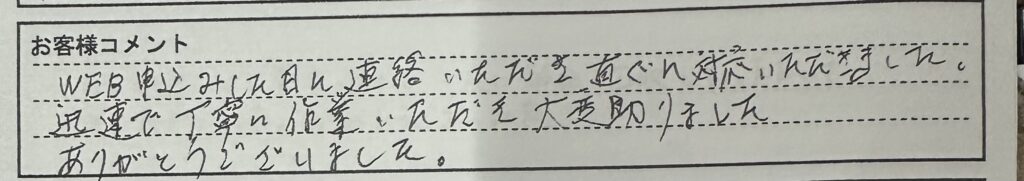 お客様コメント
WEB申込みした日に連絡いただき直ぐに対応いただきました。
迅速で丁寧に作業いただき大変助りました
ありがとうございました。